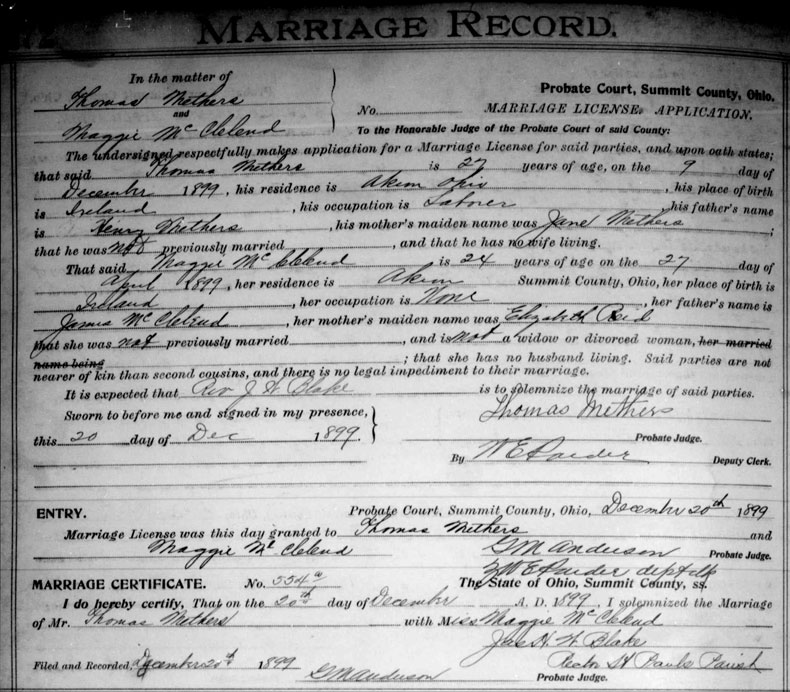 MARRIAGE RECORD.
In the matter of
Thomas Methers
and
Maggie McClelend
Probate Court, Summit County, Ohio.
No. MARRIAGE LICENSE APPLICATION.
To the Honorable Judge of the Probate Court of said County:
The undersigned respectfully makes application for a Marriage License for said parties, and upon oath states;
that said Thomas Methers is 27 years of age, on the 9 day of
December 1899, his residence is Akron Ohio, his place of birth
is Ireland, his occupation is Laborer, his father's name
is Henry Methers, his mother's maiden name was Jane Methers;
that he was not previously married, and that he has no wife living.
That said Maggie McClelend is 24 years of age on the 27 day of
April 1899, her residence is Akron Summit County, Ohio, her place of birth is
Ireland, her occupation is None, her father's name is
James McClelend, her mother's maiden name was Elizabeth Reid
that she was not previously married, and is not a widow or divorced woman, her married
name being; that she has no husband living. Said parties are not
nearer of kin than second cousins, and there is no legal impediment to their marriage.
It is expected that Rev J H Blake is to solemnize the marriage of said parties.
Sworn to before me and signed in my presence,
Thomas Methers
this 20 day of Dec 1899.
Probate Judge.
By Deputy Clerk.
ENTRY.
Probate Court, Summit County, Ohio, December 20th 1899
Marriage License was this day granted to Thomas Methers and
Maggie McClelend
G M Anderson Probate Judge.
MARRIAGE CERTIFICATE. No. 554
The State of Ohio, Summit County, ss.
I do hereby certify, That on the 20th day of December A. D. 1899, I solemnized the Marriage
of Mr. Thomas Methers with Miss Maggie McClelend
Jas H W Blake
Rector St Pauls Parish
Filed and Recorded, December 20th 1899
G M Anderson
Probate Judge.